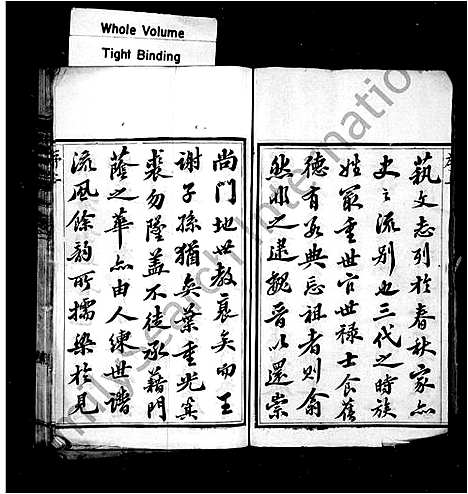 Whole Volume
Tight Binding
藝文志列於春秋家亦
史之流別也三代之時族
姓最重世官世祿士食舊
德有數典忘祖者則僉
然非之逮魏晉以還崇
尚門地世教衰矣而王
謝子孫猶矣葉重光箕
裘勿墜蓋不徒承藉門
蔭之華亦由人練世譜
流風餘韵所擩染於見